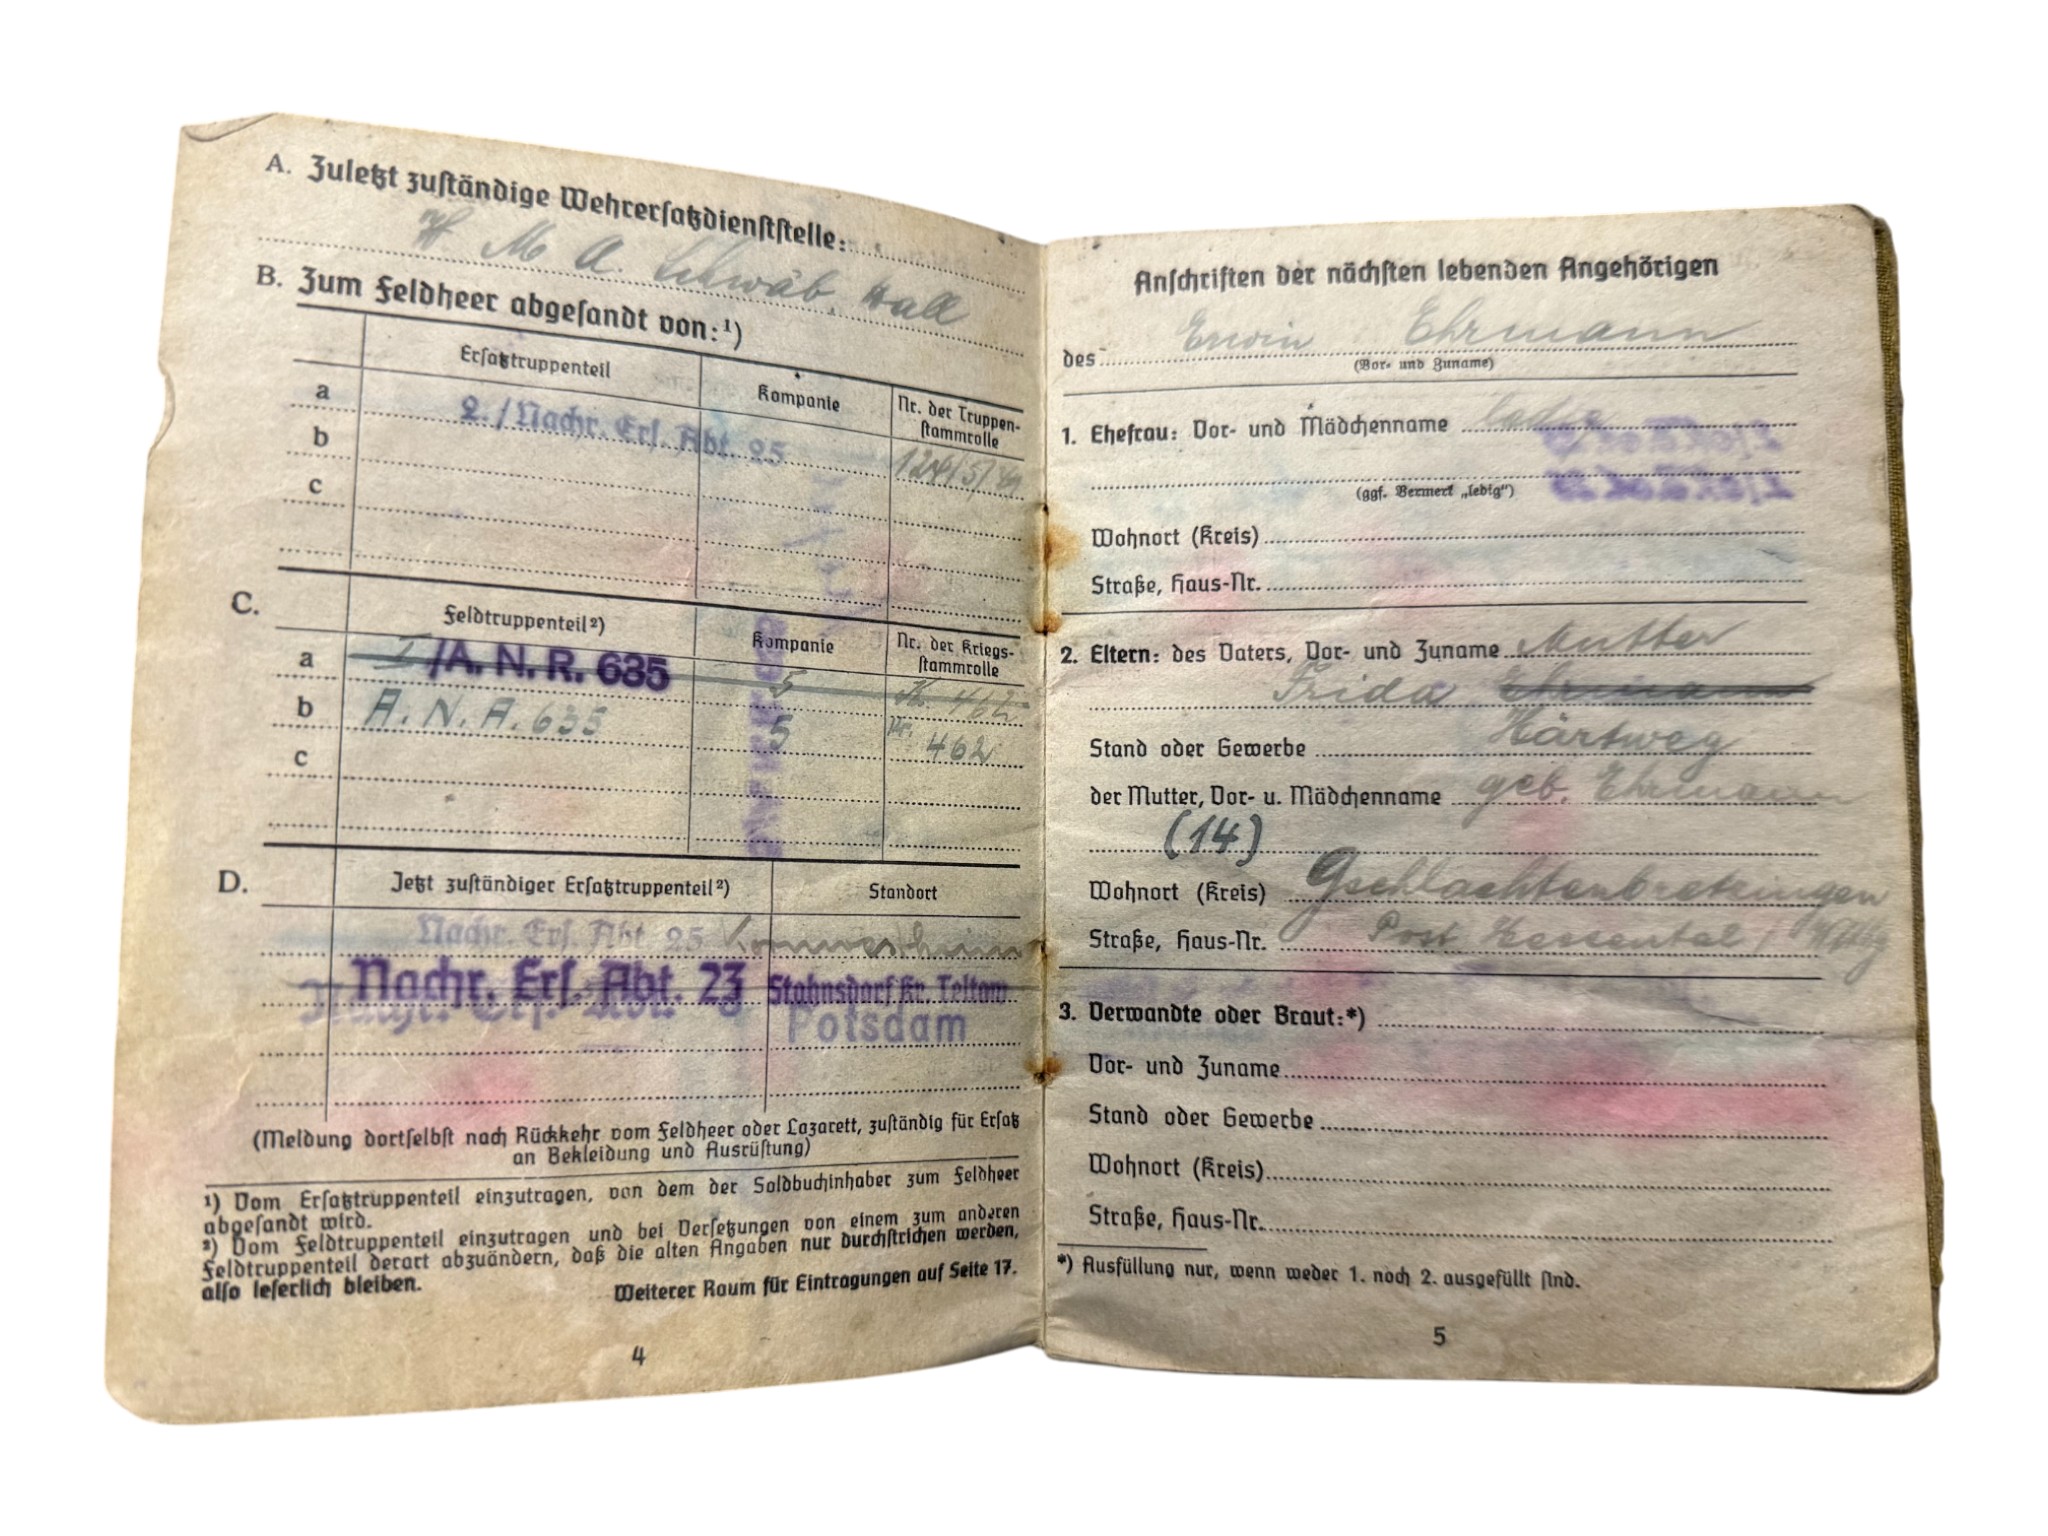 A. Zuletzt zuständige Wehrersatzdienststelle:
W M A. Schwäb. Hall
B. Zum Feldheer abgesandt von:¹)
Ersatztruppenteil Kompanie Nr. der Truppen-
stammrolle
a 2./Nachr. Ers. Abt. 25
b
c
C. Feldtruppenteil²) Kompanie Nr. der Kriegs-
stammrolle
a I/A. N. R. 635 5 K. 462
b A. N. A. 635 5 Nr. 462
c
D. Jetzt zuständiger Ersatztruppenteil²) Standort
Nachr. Ers. Abt 25 Kornwestheim
Nachr. Ers. Abt. 23 Stahnsdorf Kr. Teltow
Nachr. Ers. Abt. Potsdam
(Meldung dortselbst nach Rückkehr vom Feldheer oder Lazarett, zuständig für Ersatz
an Bekleidung und Ausrüstung)
¹) Vom Ersatztruppenteil einzutragen, von dem der Soldbuchinhaber zum Feldheer
abgesandt wird.
²) Vom Feldtruppenteil einzutragen und bei Versetzungen von einem zum anderen
Feldtruppenteil derart abzuändern, daß die alten Angaben nur durchstrichen werden,
also leserlich bleiben.
Weiterer Raum für Eintragungen auf Seite 17.
4
Anschriften der nächsten lebenden Angehörigen
des Erwin Ehrmann
(Vor- und Zuname)
1. Ehefrau: Vor- und Mädchenname ledig
(ggf. Vermerk „ledig")
Wohnort (Kreis)
Straße, Haus-Nr.
2. Eltern: des Vaters, Vor- und Zuname Mutter
Frida Ehrmann
Härtweg
Stand oder Gewerbe
der Mutter, Vor- u. Mädchenname geb. Ehrmann
(14)
Wohnort (Kreis) Gschlachtenbretzingen
Straße, Haus-Nr. Post Hessental
3. Verwandte oder Braut:*)
Vor- und Zuname
Stand oder Gewerbe
Wohnort (Kreis)
Straße, Haus-Nr.
*) Ausfüllung nur, wenn weder 1. noch 2. ausgefüllt sind.
5